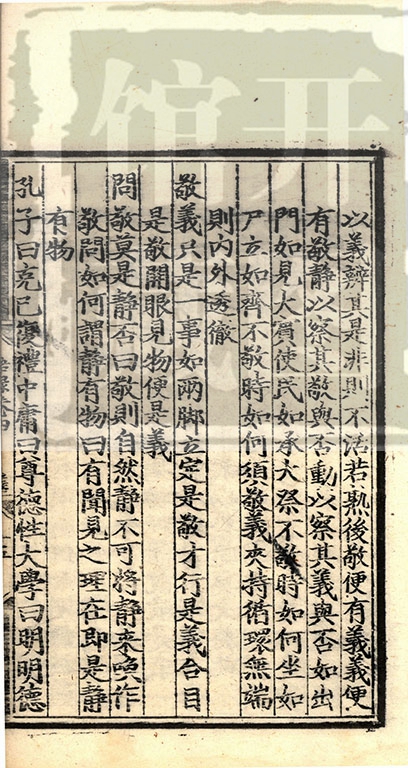 以義辨其是非則不活若熟後敬便有義義便
有敬靜以察其敬與否動以察其義與否如出
門如見大賓使民如承大祭不敬時如何坐如
尸立如齊不敬時如何須敬義夾持循環無端
則內外透徹
敬義只是一事如兩脚立定是敬才行是義合目
是敬開眼見物便是義
問敬莫是靜否曰敬則自然靜不可將靜來喚作
敬問如何謂靜有物曰有聞見之理在即是靜
有物
孔子曰克己復禮中庸曰尊德性大學曰明明德